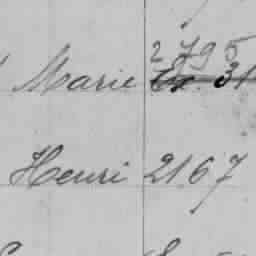 2795
Marie 31
Henri 2167